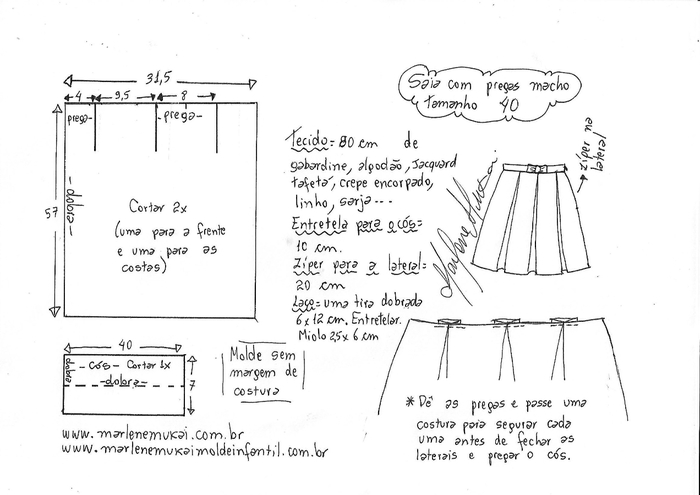 31,5
4 9,5 8
prega- -prega-
57
-dobra-
Cortar 2x
(uma para a frente
e uma para as
costas)
40
dobra
-Cós- Cortar 1x
-dobra-
7
Molde sem
margem de
costura
www.marlenemukai.com.br
www.marlenemukaimoldeinfantil.com.br
Saia com pregas macho
tamanho 40
Tecido= 80 cm de
gabardine, algodão, jacquard
tafetá, crepe encorpado,
linho, sarja...
Entretela para o cós=
10 cm.
Zíper para a lateral=
20 cm
Laço= uma tira dobrada
6x12 cm. Entretelar.
Miolo 2,5x 6 cm
Marlene Mukai
zíper na
lateral
* Dê as pregas e passe uma
costura para segurar cada
uma antes de fechar as
laterais e pregar o cós.